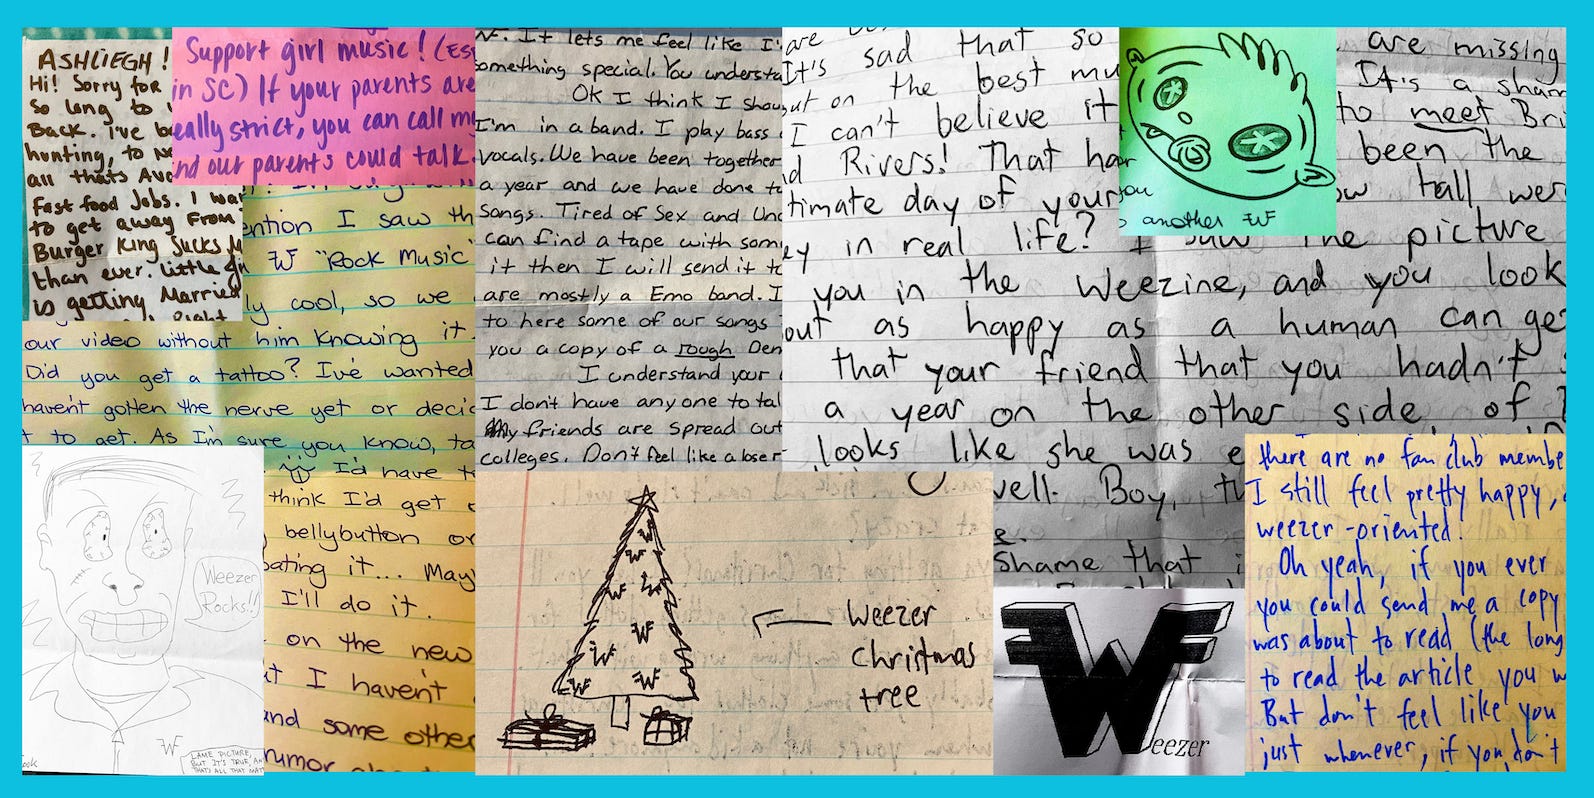 ASHLIEGH!
Hi! Sorry for
So long to
Back. I've
hunting, to
all thats
fast food Jobs. I
to get away From
Burger King Sucks
than ever. little
is getting Married
Right
Support girl music! (
in SC) If your parents are
really strict, you can call my
and our parents could talk.
I saw
"Rock Music"
cool, so we
our video without him knowing it
Did you get a tattoo? I've wanted
haven't gotten the nerve yet or
to get. As I'm sure you know,
I'd have
think I'd get
bellybutton or
it... May
I'll do it.
on the new
I haven't
and some other
rumor
Weezer
Rocks!!
LAME PICTURE,
BUT IT'S TRUE,
THATS ALL THAT
It lets me feel like
something special. You
OK I think I
I'm in a band. I play bass
vocals. We have been together
a year and we have done
Songs. Tired of Sex and
can find a tape with some
it then I will send it to
are mostly a Emo band. I
to here some of our songs
you a copy of a rough
I understand your
I don't have anyone to
My friends are spread out
colleges. Don't feel like a loser
Weezer
christmas
tree
are
It's sad that so
out on the best
I can't believe it
Rivers! That
day of your
in real life? I saw the picture
you in the Weezine, and you look
out as happy as a human can
that your friend that you hadn't
a year on the other side of
looks like she was
well. Boy,
shame that
you
another
are missing
It's a
to meet
been the
tall were
Weezer
there are no fan club
I still feel pretty happy,
weezer-oriented!
Oh yeah, if you ever
you could send me a copy
was about to read (the long
to read the article you
But don't feel like you
just whenever, if you don't